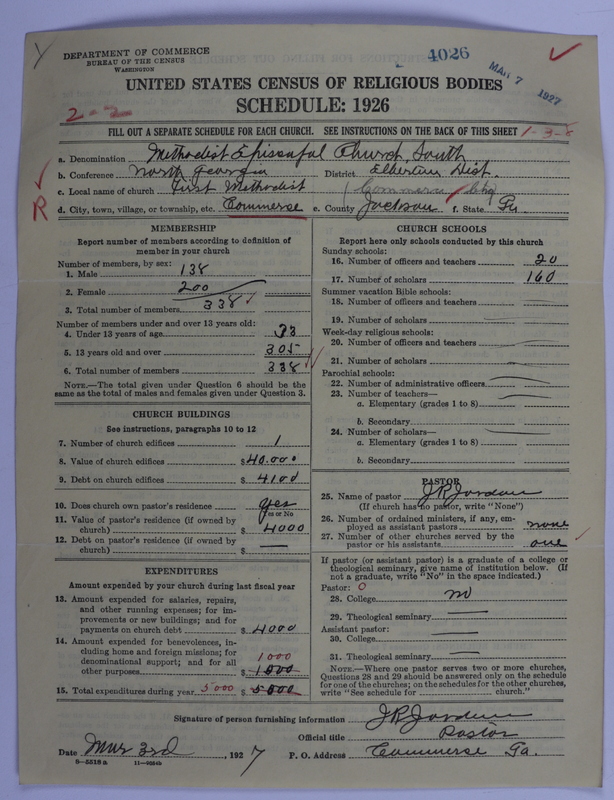 DEPARTMENT OF COMMERCE
BUREAU OF THE CENSUS
WASHINGTON
4026
MAR 7 1927
UNITED STATES CENSUS OF RELIGIOUS BODIES
SCHEDULE: 1926
2-2
FILL OUT A SEPARATE SCHEDULE FOR EACH CHURCH. SEE INSTRUCTIONS ON THE BACK OF THIS SHEET
1-3-
a. Denomination Methodist Episcopal Church, South
b. Conference North Georgia District Elberton Dist.
c. Local name of church First Methodist Commerce
R
d. City, town, village, or township, etc. Commerse e. County Jackson f. State Ga.
MEMBERSHIP
Report number of members according to definition of member in your church
Number of members, by sex:
1. Male 138
2. Female 200
3. Total number of members 338
Number of members under and over 13 years old:
4. Under 13 years of age 33
5. 13 years old and over 305
6. Total number of members 338
NOTE.—The total given under Question 6 should be the same as the total of males and females given under Question 3.
CHURCH BUILDINGS
See instructions, paragraphs 10 to 12
7. Number of church edifices 1
8. Value of church edifices $40.000
9. Debt on church edifices $4100
10. Does church own pastor's residence yes
Yes or No
11. Value of pastor's residence (if owned by church) $4000
12. Debt on pastor's residence (if owned by church) $ —
EXPENDITURES
Amount expended by your church during last fiscal year
13. Amount expended for salaries, repairs, and other running expenses; for improvements or new buildings; and for payments on church debt $4000
14. Amount expended for benevolences, including home and foreign missions; for denominational support; and for all other purposes 1000 $1000
15. Total expenditures during year 5000 $5000
CHURCH SCHOOLS
Report here only schools conducted by this church
Sunday schools:
16. Number of officers and teachers 20
17. Number of scholars 160
Summer vacation Bible schools:
18. Number of officers and teachers
19. Number of scholars
Week-day religious schools:
20. Number of officers and teachers
21. Number of scholars
Parochial schools:
22. Number of administrative officers
23. Number of teachers—
a. Elementary (grades 1 to 8)
b. Secondary
24. Number of scholars—
a. Elementary (grades 1 to 8)
b. Secondary
PASTOR
25. Name of pastor J R Jordan
(If church has no pastor, write "None")
26. Number of ordained ministers, if any, employed as assistant pastors none
27. Number of other churches served by the pastor or his assistants one
If pastor (or assistant pastor) is a graduate of a college or theological seminary, give name of institution below. (If not a graduate, write "No" in the space indicated.)
Pastor: O
28. College no
29. Theological seminary
Assistant pastor:
30. College
31. Theological seminary
NOTE.—Where one pastor serves two or more churches, Questions 28 and 29 should be answered only on the schedule for one of the churches; on the schedules for the other churches, write "See schedule for church."
Signature of person furnishing information J R Jordan
Official title Pastor
Date Mar 3rd, 1927 P. O. Address Commerse Ga.
8-5518a 11-9024b